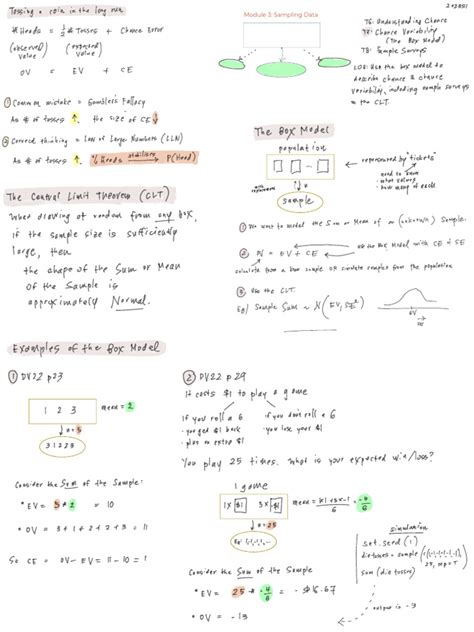 Tossing a coin in the long run
# Heads = 1/2 # Tosses + Chance Error
(observed value) (expected value)
OV = EV + CE
① Common mistake = Gambler's Fallacy
As # of tosses ↑, the size of CE ↓
② Correct thinking = Law of Large Numbers (LLN)
As # of tosses ↑, % Heads stabilises → P(Head)
Module 3: Sampling Data
T6: Understanding Chance
T7: Chance Variability
(The Box Model)
T8: Sample Surveys
LO5: Use the box model to
describe chance & chance
variability, including sample surveys
& the CLT.
The Central Limit Theorem (CLT)
When drawing at random from any box,
if the sample size is sufficiently
large, then
the shape of the Sum or Mean
of the Sample is
approximately Normal.
The Box Model
population
represented by "tickets"
- need to know
- what values
- how many of each
with replacement
n
sample
① We want to model the Sum or Mean of a (unknown) Sample.
② OV = EV + CE
use the Box Model with CE ≈ SE
calculate from a known sample or simulate samples from the population
③ Use the CLT.
Eg/ Sample Sum ~ N(EV, SE²)
EV
SE
Examples of the Box Model
① DV22 p23
1 2 3
mean = 2
n = 5
3 1 2 2 3
Consider the Sum of the Sample:
* EV = 5 * 2 = 10
* OV = 3 + 1 + 2 + 2 + 3 = 11
So CE = OV - EV = 11 - 10 = 1
② DV22 p29
It costs $1 to play a game
If you roll a 6
- you get $1 back
- plus an extra $1
if you don't roll a 6
- you lose your $1
You play 25 times. What is your expected win/loss?
1 game
1 x $1 5 x -$1
n = 25
Eg: {-1,-1,-1,...}
mean = 1x1+5x-1 / 6 = -4/6
Consider the Sum of the Sample
* EV = 25 * -4/6 = -$16.67
* OV = -13
simulation
set.seed(1)
dietosses = sample(c(-1,-1,-1,-1,-1,1), 25, rep=T)
sum(dietosses)
output is -13